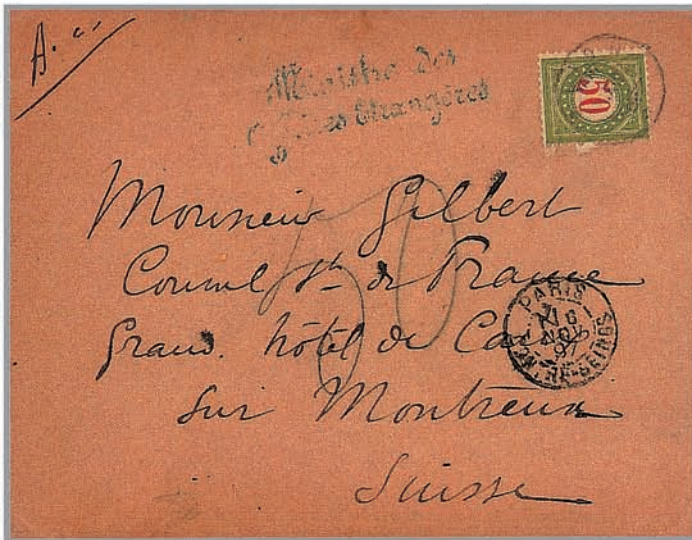 Ministre des
Affaires Etrangères
50
Monsieur Gilbert
Consul Gl de France
Grand hôtel de Caux
sur Montreux
Suisse
50
PARIS
6
NOV
97